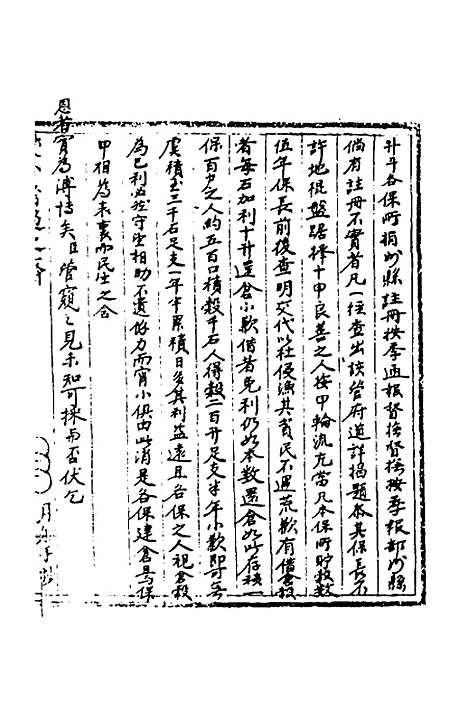 升斗各保所捐州縣註冊按季通報督撫督撫按季報部州縣
倘有註冊不實者凡一經查出該管府道詳揭題參其保長不
許地棍盤踞擇十甲良善之人按甲輪流充當凡本保所貯穀數
伍年保長前後查明交代以杜侵漁其貧民不遇荒歉有借倉穀
者每石加利十升還倉小歉借者免利仍如本數還倉如此存積一
保百戶之人約五百口積穀千石人得穀二百升足支半年小歉即可無
虞積至三千石足支一年半累積日多其利益遠且各保之人視倉穀
為己利必至守望相助不遺餘力而宵小俱由此消是各保建倉與保
甲相為表裏而民生之合
恩者實為溥博矣臣管窺之見未知可採而否伏乞